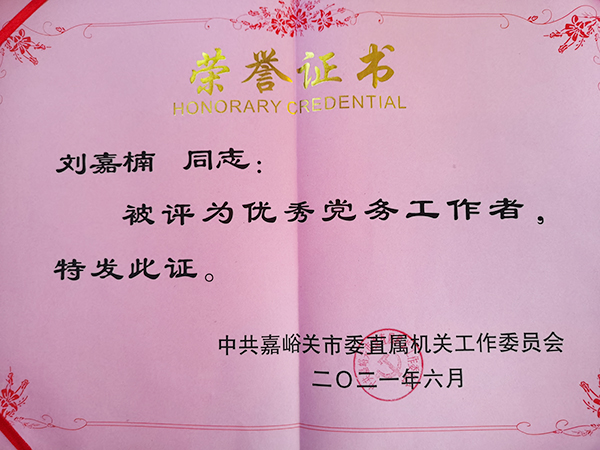 荣誉证书
HONORARY CREDENTIAL
刘嘉楠 同志：
被评为优秀党务工作者，
特发此证。
中共嘉峪关市委直属机关工作委员会
二〇二一年六月